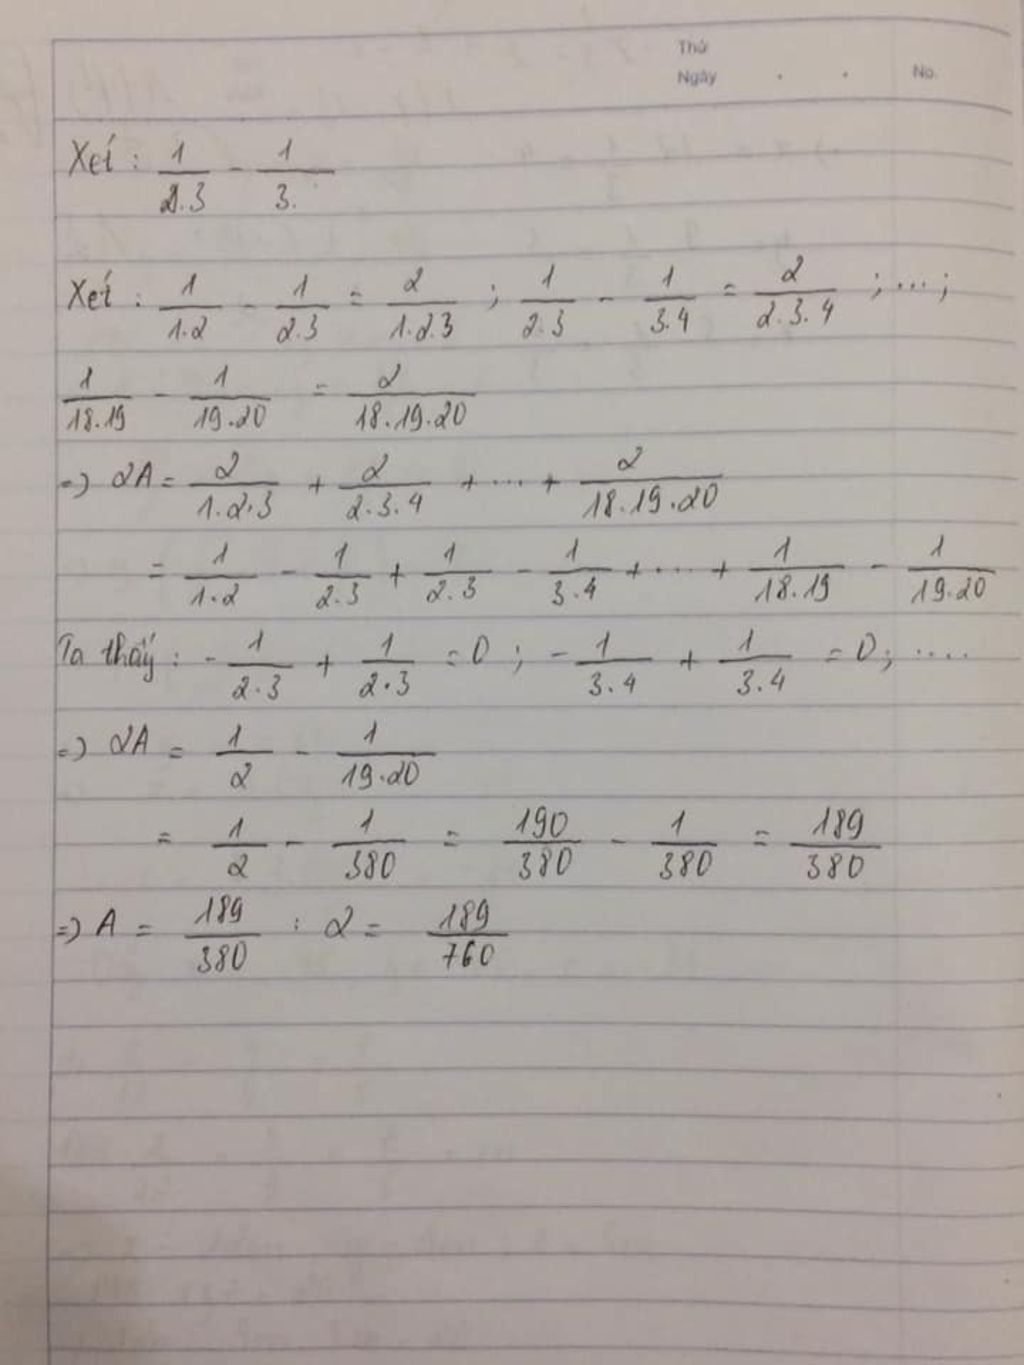 Thứ
Ngày . . No.
Xét : 1/2.3 - 1/3.
Xét : 1/1.2 - 1/2.3 = 2/1.2.3 ; 1/2.3 - 1/3.4 = 2/2.3.4 ; ... ;
1/18.19 - 1/19.20 = 2/18.19.20
=> 2A = 2/1.2.3 + 2/2.3.4 + ... + 2/18.19.20
= 1/1.2 - 1/2.3 + 1/2.3 - 1/3.4 + .... + 1/18.19 - 1/19.20
Ta thấy : - 1/2.3 + 1/2.3 = 0 ; - 1/3.4 + 1/3.4 = 0 ; ....
=> 2A = 1/2 - 1/19.20
= 1/2 - 1/380 = 190/380 - 1/380 = 189/380
=> A = 189/380 : 2 = 189/760